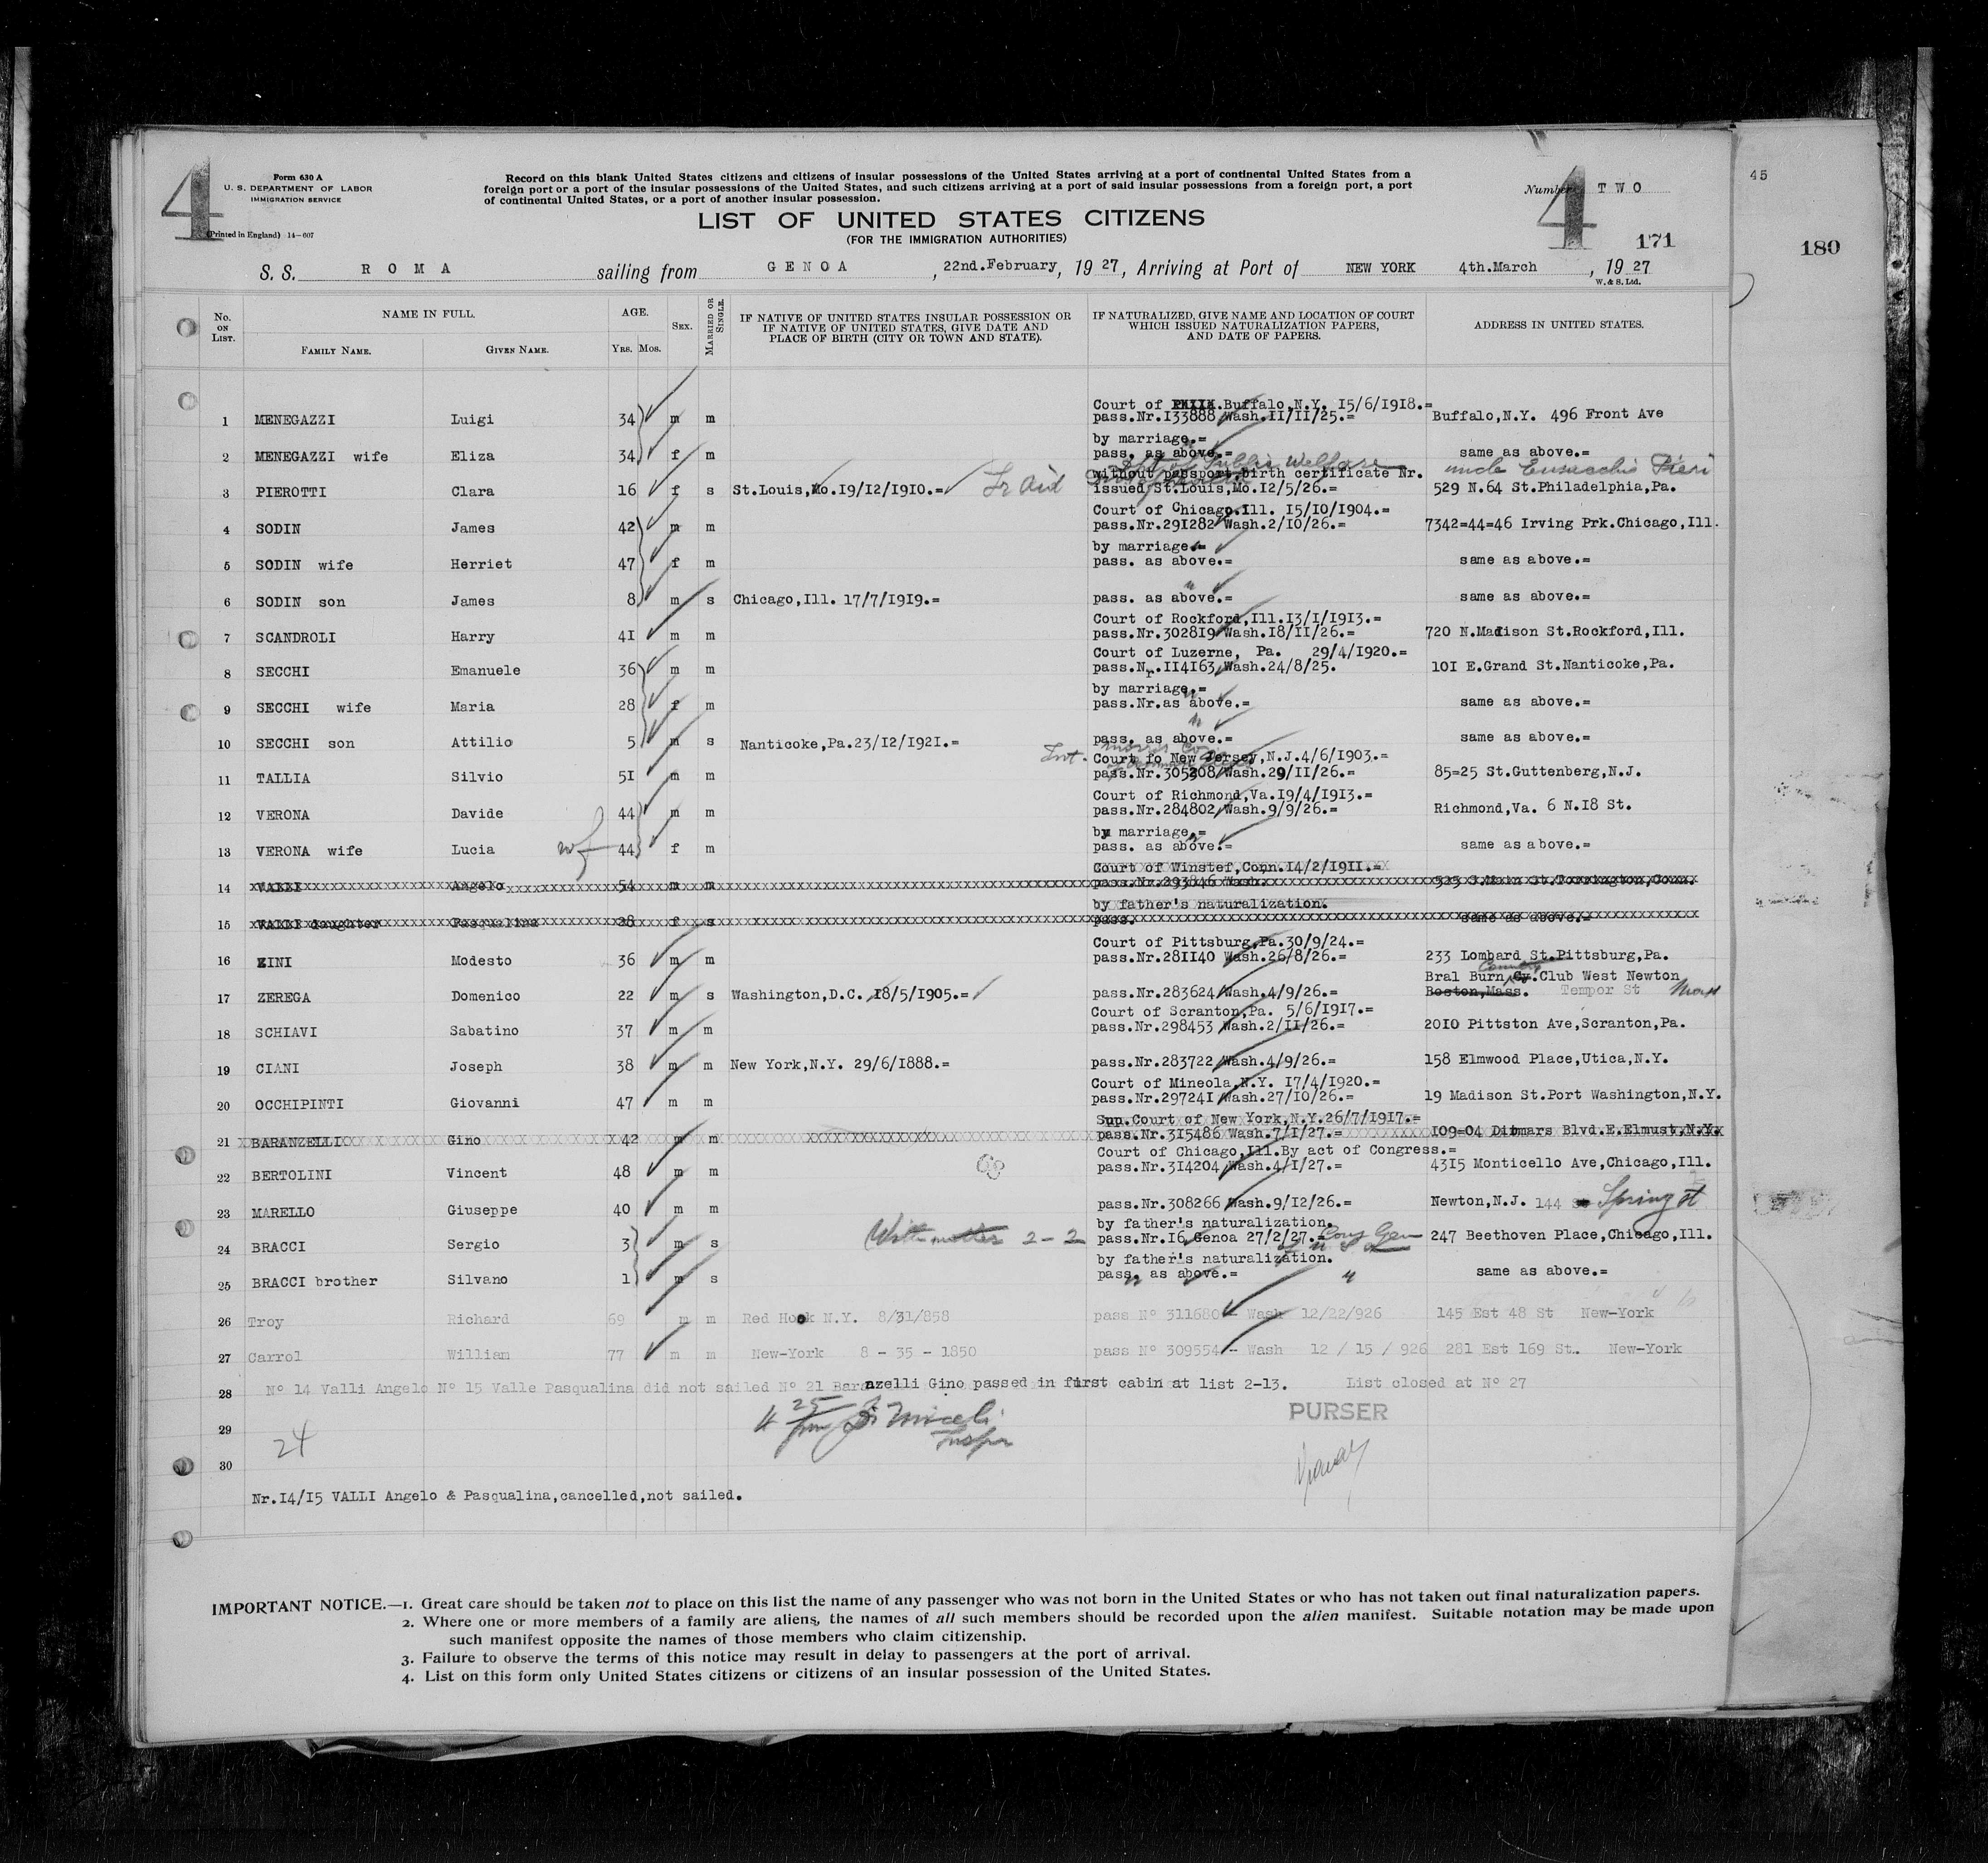 4
Form 630 A
U. S. DEPARTMENT OF LABOR
IMMIGRATION SERVICE
(Printed in England) 14—607
Record on this blank United States citizens and citizens of insular possessions of the United States arriving at a port of continental United States from a
foreign port or a port of the insular possessions of the United States, and such citizens arriving at a port of said insular possessions from a foreign port, a port
of continental United States, or a port of another insular possession.
LIST OF UNITED STATES CITIZENS
(FOR THE IMMIGRATION AUTHORITIES)
Number TWO
4
171
45
180
S. S. ROMA sailing from GENOA, 22nd.February, 1927, Arriving at Port of NEW YORK 4th.March, 1927
W. & S. Ltd.
No. ON LIST. NAME IN FULL. AGE. SEX. MARRIED OR SINGLE. IF NATIVE OF UNITED STATES INSULAR POSSESSION OR IF NATIVE OF UNITED STATES, GIVE DATE AND PLACE OF BIRTH (CITY OR TOWN AND STATE). IF NATURALIZED, GIVE NAME AND LOCATION OF COURT WHICH ISSUED NATURALIZATION PAPERS, AND DATE OF PAPERS. ADDRESS IN UNITED STATES.
FAMILY NAME. GIVEN NAME. YRS. MOS.
Court of Buffalo,N.Y. I5/6/I9I8.=
1 MENEGAZZI Luigi 34 m m pass.Nr.I33888 Wash.II/II/25.= Buffalo,N.Y. 496 Front Ave
by marriage.=
2 MENEGAZZI wife Eliza 34 f m pass. as above.= same as above.=
Dpt of Public Welfare uncle Eusacchio Pieri
without passport birth certificate Nr.
3 PIEROTTI Clara 16 f s St.Louis,Mo.I9/I2/I9I0.= Tr Aid issued St.Louis,Mo.I2/5/26.= 529 N.64 St.Philadelphia,Pa.
Court of Chicago.Ill. I5/I0/I904.=
4 SODIN James 42 m m pass.Nr.29I282 Wash.2/I0/26.= 7342=44=46 Irving Prk.Chicago,Ill.
by marriage.=
5 SODIN wife Herriet 47 f m pass. as above.= same as above.=
6 SODIN son James 8 m s Chicago,Ill. I7/7/I9I9.= pass. as above.= same as above.=
Court of Rockford,Ill.I3/I/I9I3.=
7 SCANDROLI Harry 4I m m pass.Nr.3028I9 Wash.I8/II/26.= 720 N.Madison St.Rockford,Ill.
Court of Luzerne, Pa. 29/4/I920.=
8 SECCHI Emanuele 36 m m pass.Nr.II4I63,Wash.24/8/25. I0I E.Grand St.Nanticoke,Pa.
by marriage.=
9 SECCHI wife Maria 28 f m pass.Nr.as above.= same as above.=
10 SECCHI son Attilio 5 m s Nanticoke,Pa.23/I2/I92I.= pass. as above.= same as above.=
Morris Co.
Court fo New Jersey,N.J.4/6/I903.=
11 TALLIA Silvio 5I m m pass.Nr.305208/Wash.29/II/26.= 85=25 St.Guttenberg,N.J.
Court of Richmond,Va.I9/4/I9I3.=
12 VERONA Davide 44 m m pass.Nr.284802 Wash.9/9/26.= Richmond,Va. 6 N.I8 St.
by marriage.=
13 VERONA wife Lucia wf 44 f m pass. as above.= same as above.=
Court of Winstef,Conn.I4/2/I9II.=
14 VALLI Angelo 54 m m pass.Nr.293846 Wash. 525 S.Main St.Torrington,Conn.
by father's naturalization.
15 VALLI daughter Pasqualina 28 f s pass. same as above.=
Court of Pittsburg,Pa.30/9/24.=
16 ZINI Modesto 36 m m pass.Nr.28II40 Wash.26/8/26.= 233 Lombard St.Pittsburg,Pa.
Country
Bral Burn Cy.Club West Newton
17 ZEREGA Domenico 22 m s Washington,D.C. I8/5/I905.= pass.Nr.283624/Wash.4/9/26.= Boston,Mass. Tempor St Mass
Court of Scranton,Pa. 5/6/I9I7.=
18 SCHIAVI Sabatino 37 m m pass.Nr.298453 Wash.2/II/26.= 20I0 Pittston Ave,Scranton,Pa.
19 CIANI Joseph 38 m m New York,N.Y. 29/6/I888.= pass.Nr.283722 Wash.4/9/26.= I58 Elmwood Place,Utica,N.Y.
Court of Mineola,N.Y. I7/4/I920.=
20 OCCHIPINTI Giovanni 47 m m pass.Nr.29724I Wash.27/I0/26.= I9 Madison St.Port Washington,N.Y.
Sup.Court of New York,N.Y.26/7/I9I7.=
21 BARANZELLI Gino 42 m m pass.Nr.3I5486 Wash.7/I/27.= I09=04 Ditmars Blvd.E.Elmust,N.Y.
Court of Chicago,Ill.By act of Congress.=
22 BERTOLINI Vincent 48 m m pass.Nr.3I4204 Wash.4/I/27.= 43I5 Monticello Ave,Chicago,Ill.
23 MARELLO Giuseppe 40 m m pass.Nr.308266 Wash.9/I2/26.= Newton,N.J. 144 Spring st
by father's naturalization.
24 BRACCI Sergio 3 m s With mother 2 - 2 pass.Nr.I6 Genoa 27/2/27.= Cons Gen 247 Beethoven Place,Chicago,Ill.
by father's naturalization.
25 BRACCI brother Silvano 1 m s pass. as above.= same as above.=
26 Troy Richard 69 m m Red Hook N.Y. 8/31/858 pass Nº 311680 - Wash 12/22/926 145 Est 48 St New-York
27 Carrol William 77 m m New-York 8 - 35 - 1850 pass Nº 309554 - Wash 12 / 15 / 926 281 Est 169 St. New-York
28 Nº 14 Valli Angelo Nº 15 Valle Pasqualina did not sailed Nº 21 Baranzelli Gino passed in first cabin at list 2-13. List closed at Nº 27
PURSER
29
24
30
Nr.I4/I5 VALLI Angelo & Pasqualina,cancelled,not sailed.
IMPORTANT NOTICE.—1. Great care should be taken not to place on this list the name of any passenger who was not born in the United States or who has not taken out final naturalization papers.
2. Where one or more members of a family are aliens, the names of all such members should be recorded upon the alien manifest. Suitable notation may be made upon
such manifest opposite the names of those members who claim citizenship.
3. Failure to observe the terms of this notice may result in delay to passengers at the port of arrival.
4. List on this form only United States citizens or citizens of an insular possession of the United States.